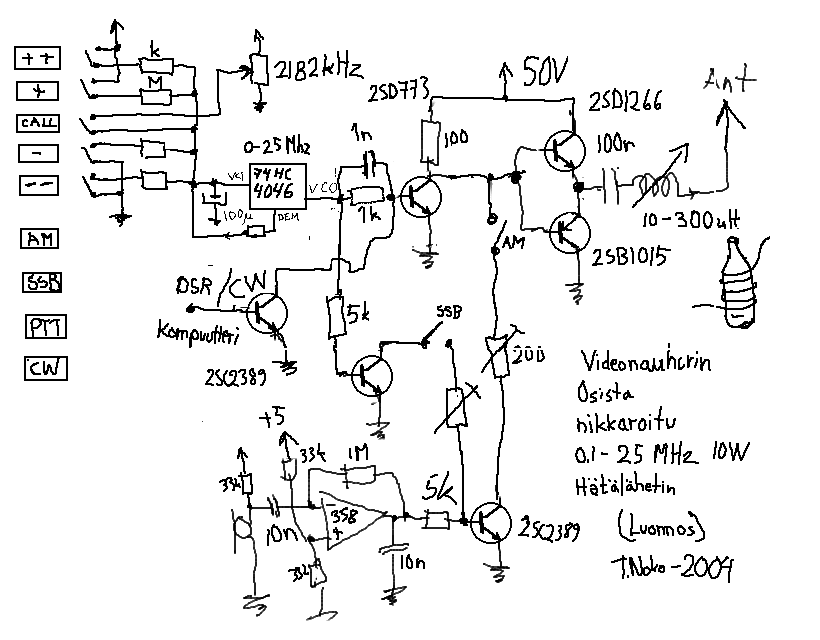 ++
+
CALL
-
--
AM
SSB
PTT
CW
k
M
2182kHz
0-25 Mhz
74HC
4046
VCI
VCO
DEM
100µ
1n
1k
2SD773
100
50V
2SD1266
100n
Ant
10-300uH
2SB1015
AM
DSR/CW
Kompuutteri
2SC2389
5k
SSB
200
+5
33k
33k
1M
358
-
+
10n
33k
10n
5k
2SC2389
Videonauhurin
Osista
nikkaroitu
0.1-25 MHz 10W
Hätälähetin
(Luonnos)
T.Noko-2004